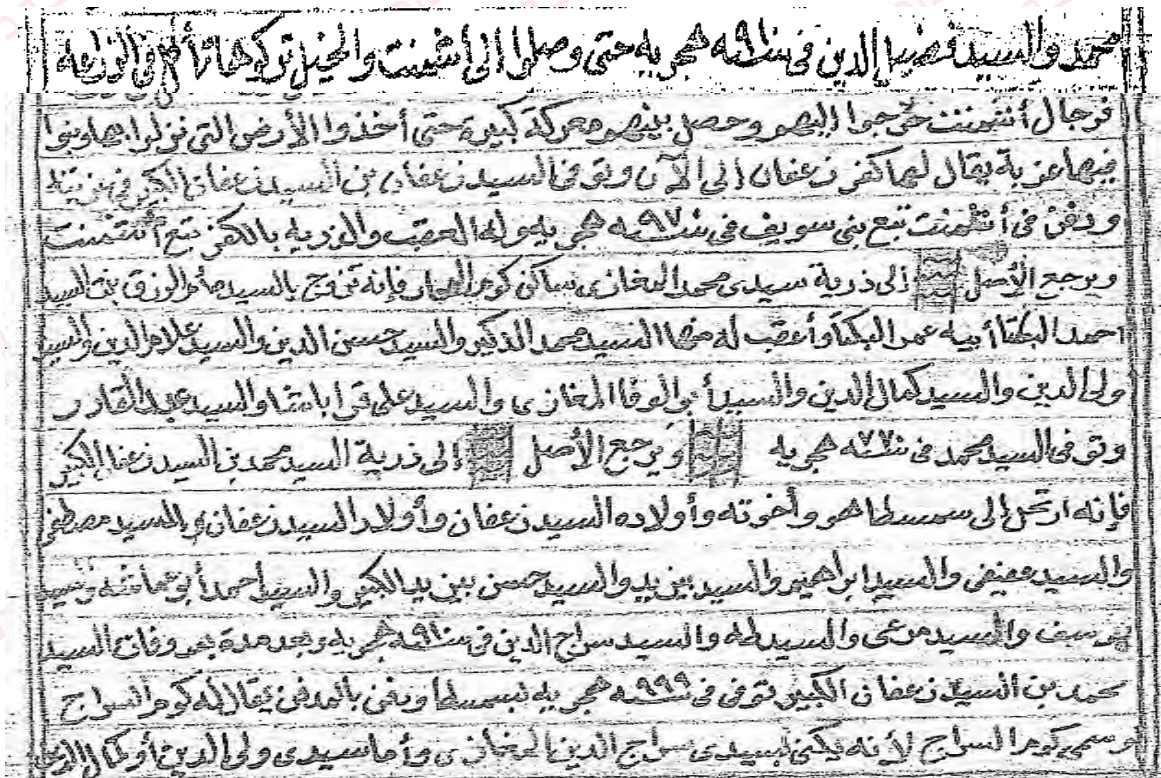 محمد والسيد فضيل الدين في سنة ٩٨٠ هجريه حتى وصلوا إلى أشمنت والخيل تركوها تأكل في الزراعه
فرجال أشمنت خرجوا إليهم وحصل بينهم معركة كبيرة حتى أخذوا الأرض التي نزلوا بها وبنوا
فيها عزبة يقال لها كفر زعفان إلى الآن وتوفى السيد زعفان بن السيد زعفان الكبير في عزبته
ودفن في أشمنت تبع بني سويف في سنة ٩٧ هجريه وله العقب والذريه بالكفر تبع أشمنت
ويرجع الأصل إلى ذرية سيدي محمد المغازى ساكن كوم فإنه تزوج بالسيده أم الرزق بنت السيد
احمد البكتا أبيه عمر البكتا وأعقب له منها السيد محمد الذكير والسيد حسن الدين والسيد علام الدين والسيد
ولى الدين والسيد كمال الدين والسيد أبو الوفا المغازى والسيد على قرا باشا والسيد عبد القادر
وتوفى السيد محمد في سنة ٧٧ هجريه ويرجع الأصل إلى ذرية السيد محمد بن السيد زعفان الكبير
فإنه ارتحل إلى سمسطا هو وأخوته وأولاده السيد زعفان وأولاد السيد زعفان السيد مصطفى
والسيد عفيفى والسيد ابراهيم والسيد يزيد والسيد حسن يزيد الكبير والسيد أحمد أبو عائشه والسيد
يوسف والسيد مرعى والسيد طه والسيد سراج الدين في سنة ٩٨ هجريه وبعد مدة بعد وفات السيد
محمد بن السيد زعفان الكبير توفى في سنة ٩٩٩ هجريه بسمسطا ودفن بالمدفن يقال له كوم السراج
وسمى كوم السراج لأنه يكنى بسيدى سراج الدين المغازى وأما سيدى ولى الدين أو كمال الدين